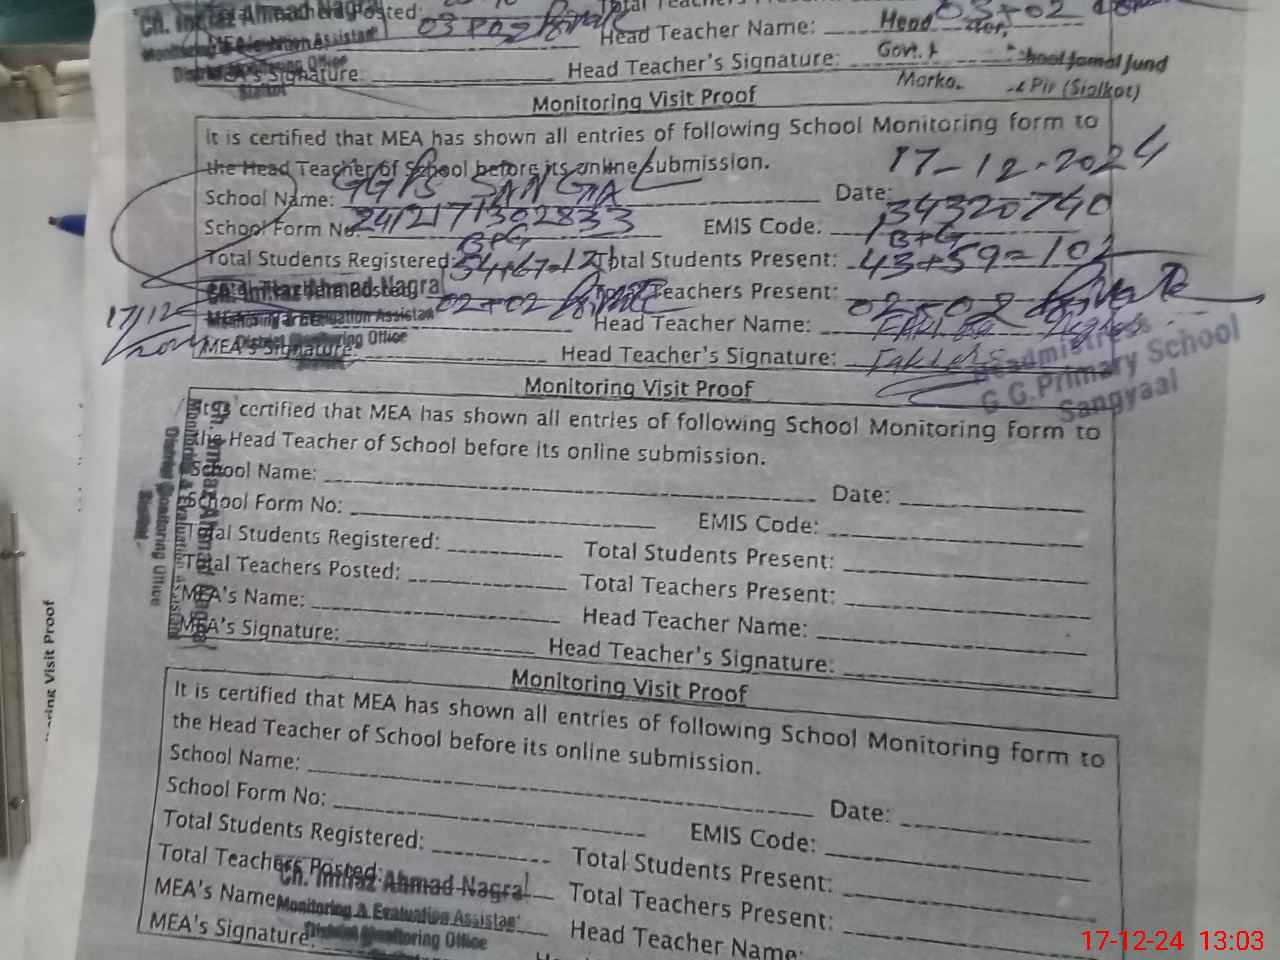 Ch. Imtiaz Ahmad Nagra Posted: 03+02 Private Total Teachers Present: 03+02
Monitoring & Evaluation Assistant Head Teacher Name: Head
District Monitoring Office
MEA's Signature: Head Teacher's Signature: Govt. School Jamal Jund
Sialkot Pir (Sialkot)
Monitoring Visit Proof
It is certified that MEA has shown all entries of following School Monitoring form to
the Head Teacher of School before its online submission.
School Name: GGPS SANGAL Date: 17-12-2024
School Form No: 2412171302833 EMIS Code: 34320740
B+G B+G
Total Students Registered: 54+67=121 Total Students Present: 43+59=102
Total Teachers Posted: 02+02 Private Total Teachers Present: 02+02 Private
Ch. Imtiaz Ahmad Nagra
Monitoring & Evaluation Assistant Head Teacher Name:
District Monitoring Office
17/12/2024
MEA's Signature: Head Teacher's Signature:
Headmistress
G G.Primary School
Sangyaal
Monitoring Visit Proof
It is certified that MEA has shown all entries of following School Monitoring form to
the Head Teacher of School before its online submission.
School Name: Date:
School Form No: EMIS Code:
Total Students Registered: Total Students Present:
Total Teachers Posted: Total Teachers Present:
MEA's Name: Head Teacher Name:
MEA's Signature: Head Teacher's Signature:
Ch. Imtiaz Ahmad Nagra
Monitoring & Evaluation Assistant
District Monitoring Office
Sialkot
Monitoring Visit Proof
It is certified that MEA has shown all entries of following School Monitoring form to
the Head Teacher of School before its online submission.
School Name: Date:
School Form No: EMIS Code:
Total Students Registered: Total Students Present:
Total Teachers Posted: Total Teachers Present:
MEA's Name Head Teacher Name:
MEA's Signature:
Ch. Imtiaz Ahmad Nagra
Monitoring & Evaluation Assistant
District Monitoring Office
Visit Proof
17-12-24 13:03